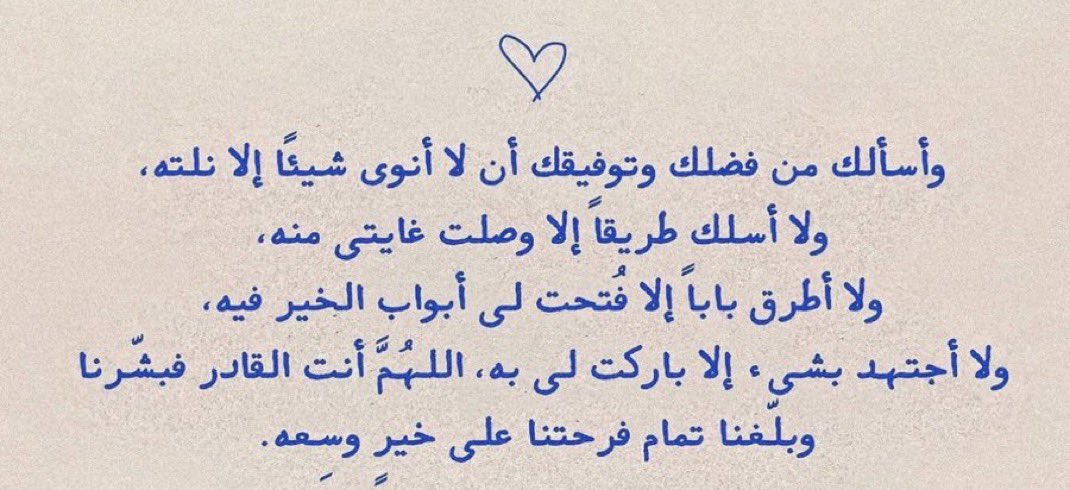 وأسألك من فضلك وتوفيقك أن لا أنوى شيئًا إلا نلته،
ولا أسلك طريقاً إلا وصلت غايتى منه،
ولا أطرق باباً إلا فُتحت لى أبواب الخير فيه،
ولا أجتهد بشىء إلا باركت لى به، اللهُمَّ أنت القادر فبشّرنا
وبلّغنا تمام فرحتنا على خيرٍ وسِعه.